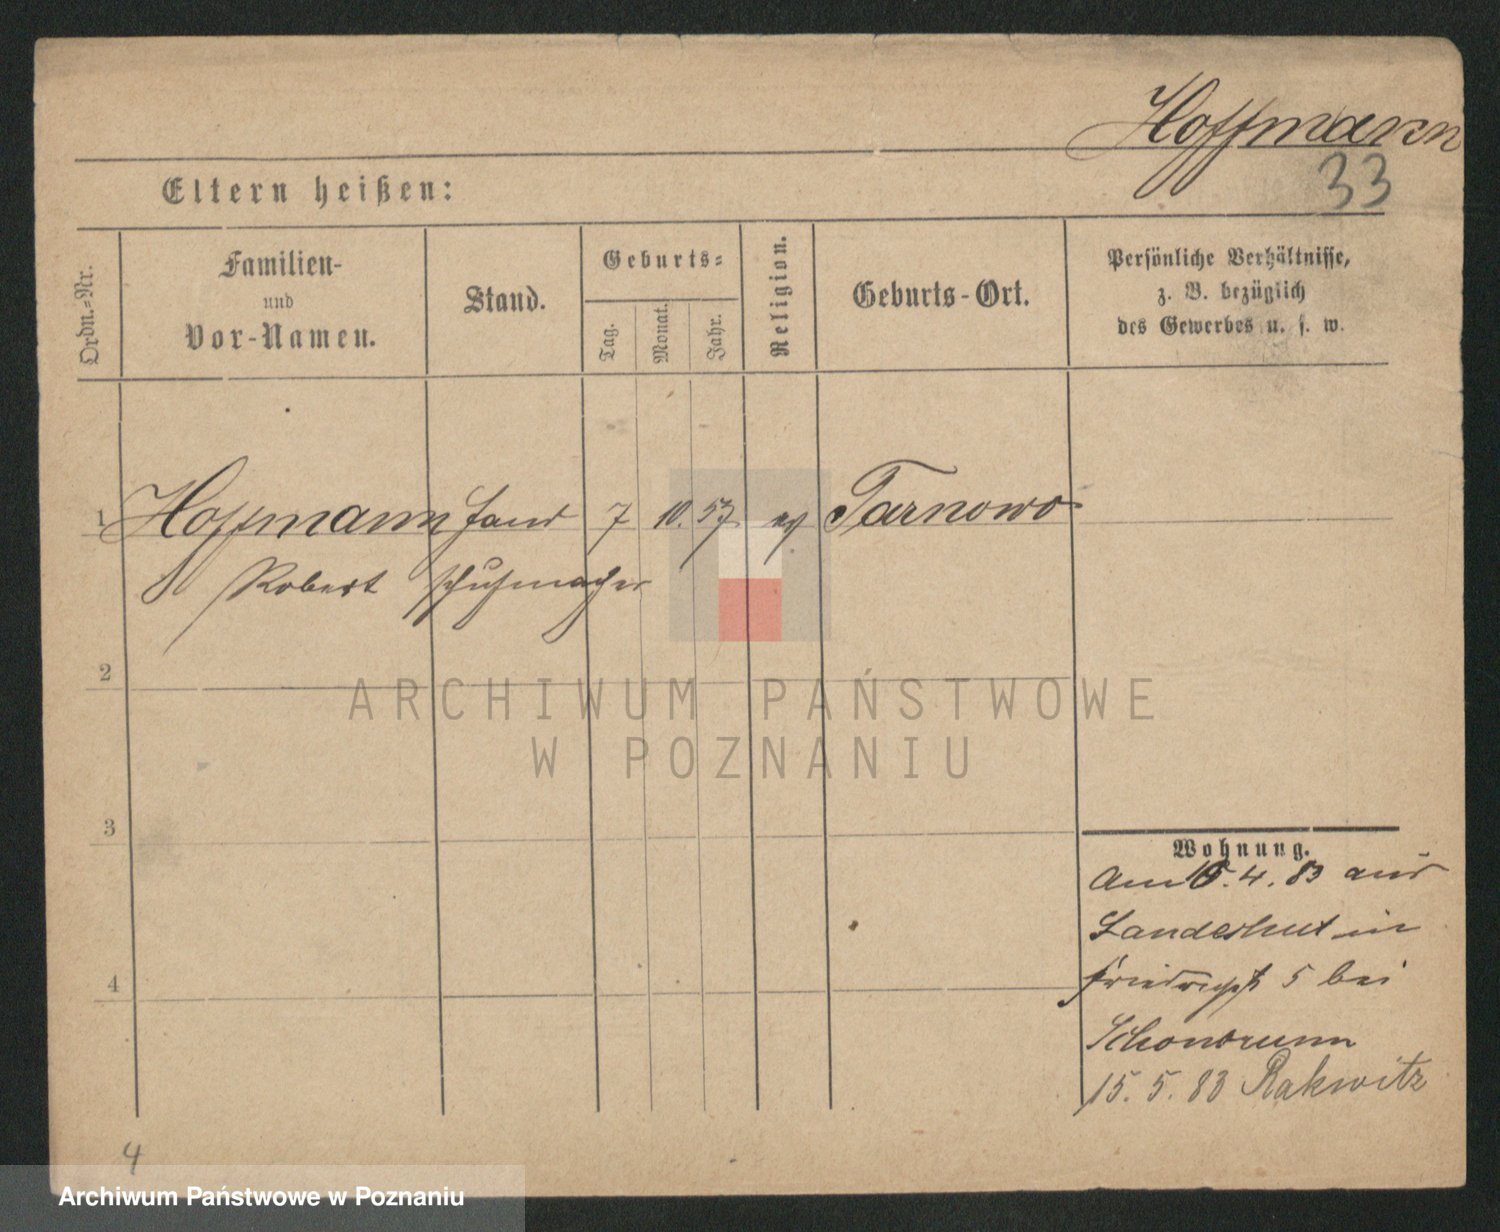 Hoffmann
33
Eltern heißen:
Ordn.-Nr.
Familien-
und
Vor-Namen.
Stand.
Geburts-
Tag.
Monat.
Jahr.
Religion.
Geburts-Ort.
Persönliche Verhältnisse,
z. B. bezüglich
des Gewerbes u. s. w.
1 Hoffmann 7 10. 57 ev Tarnowo
Robert Schuhmacher
2
3
4
Wohnung.
Am 15. 4. 83 aus
Landeshut in
5 bei
Schonbrunn
15. 5. 83 Rakwitz
4
ARCHIWUM PAŃSTWOWE
W POZNANIU
Archiwum Państwowe w Poznaniu